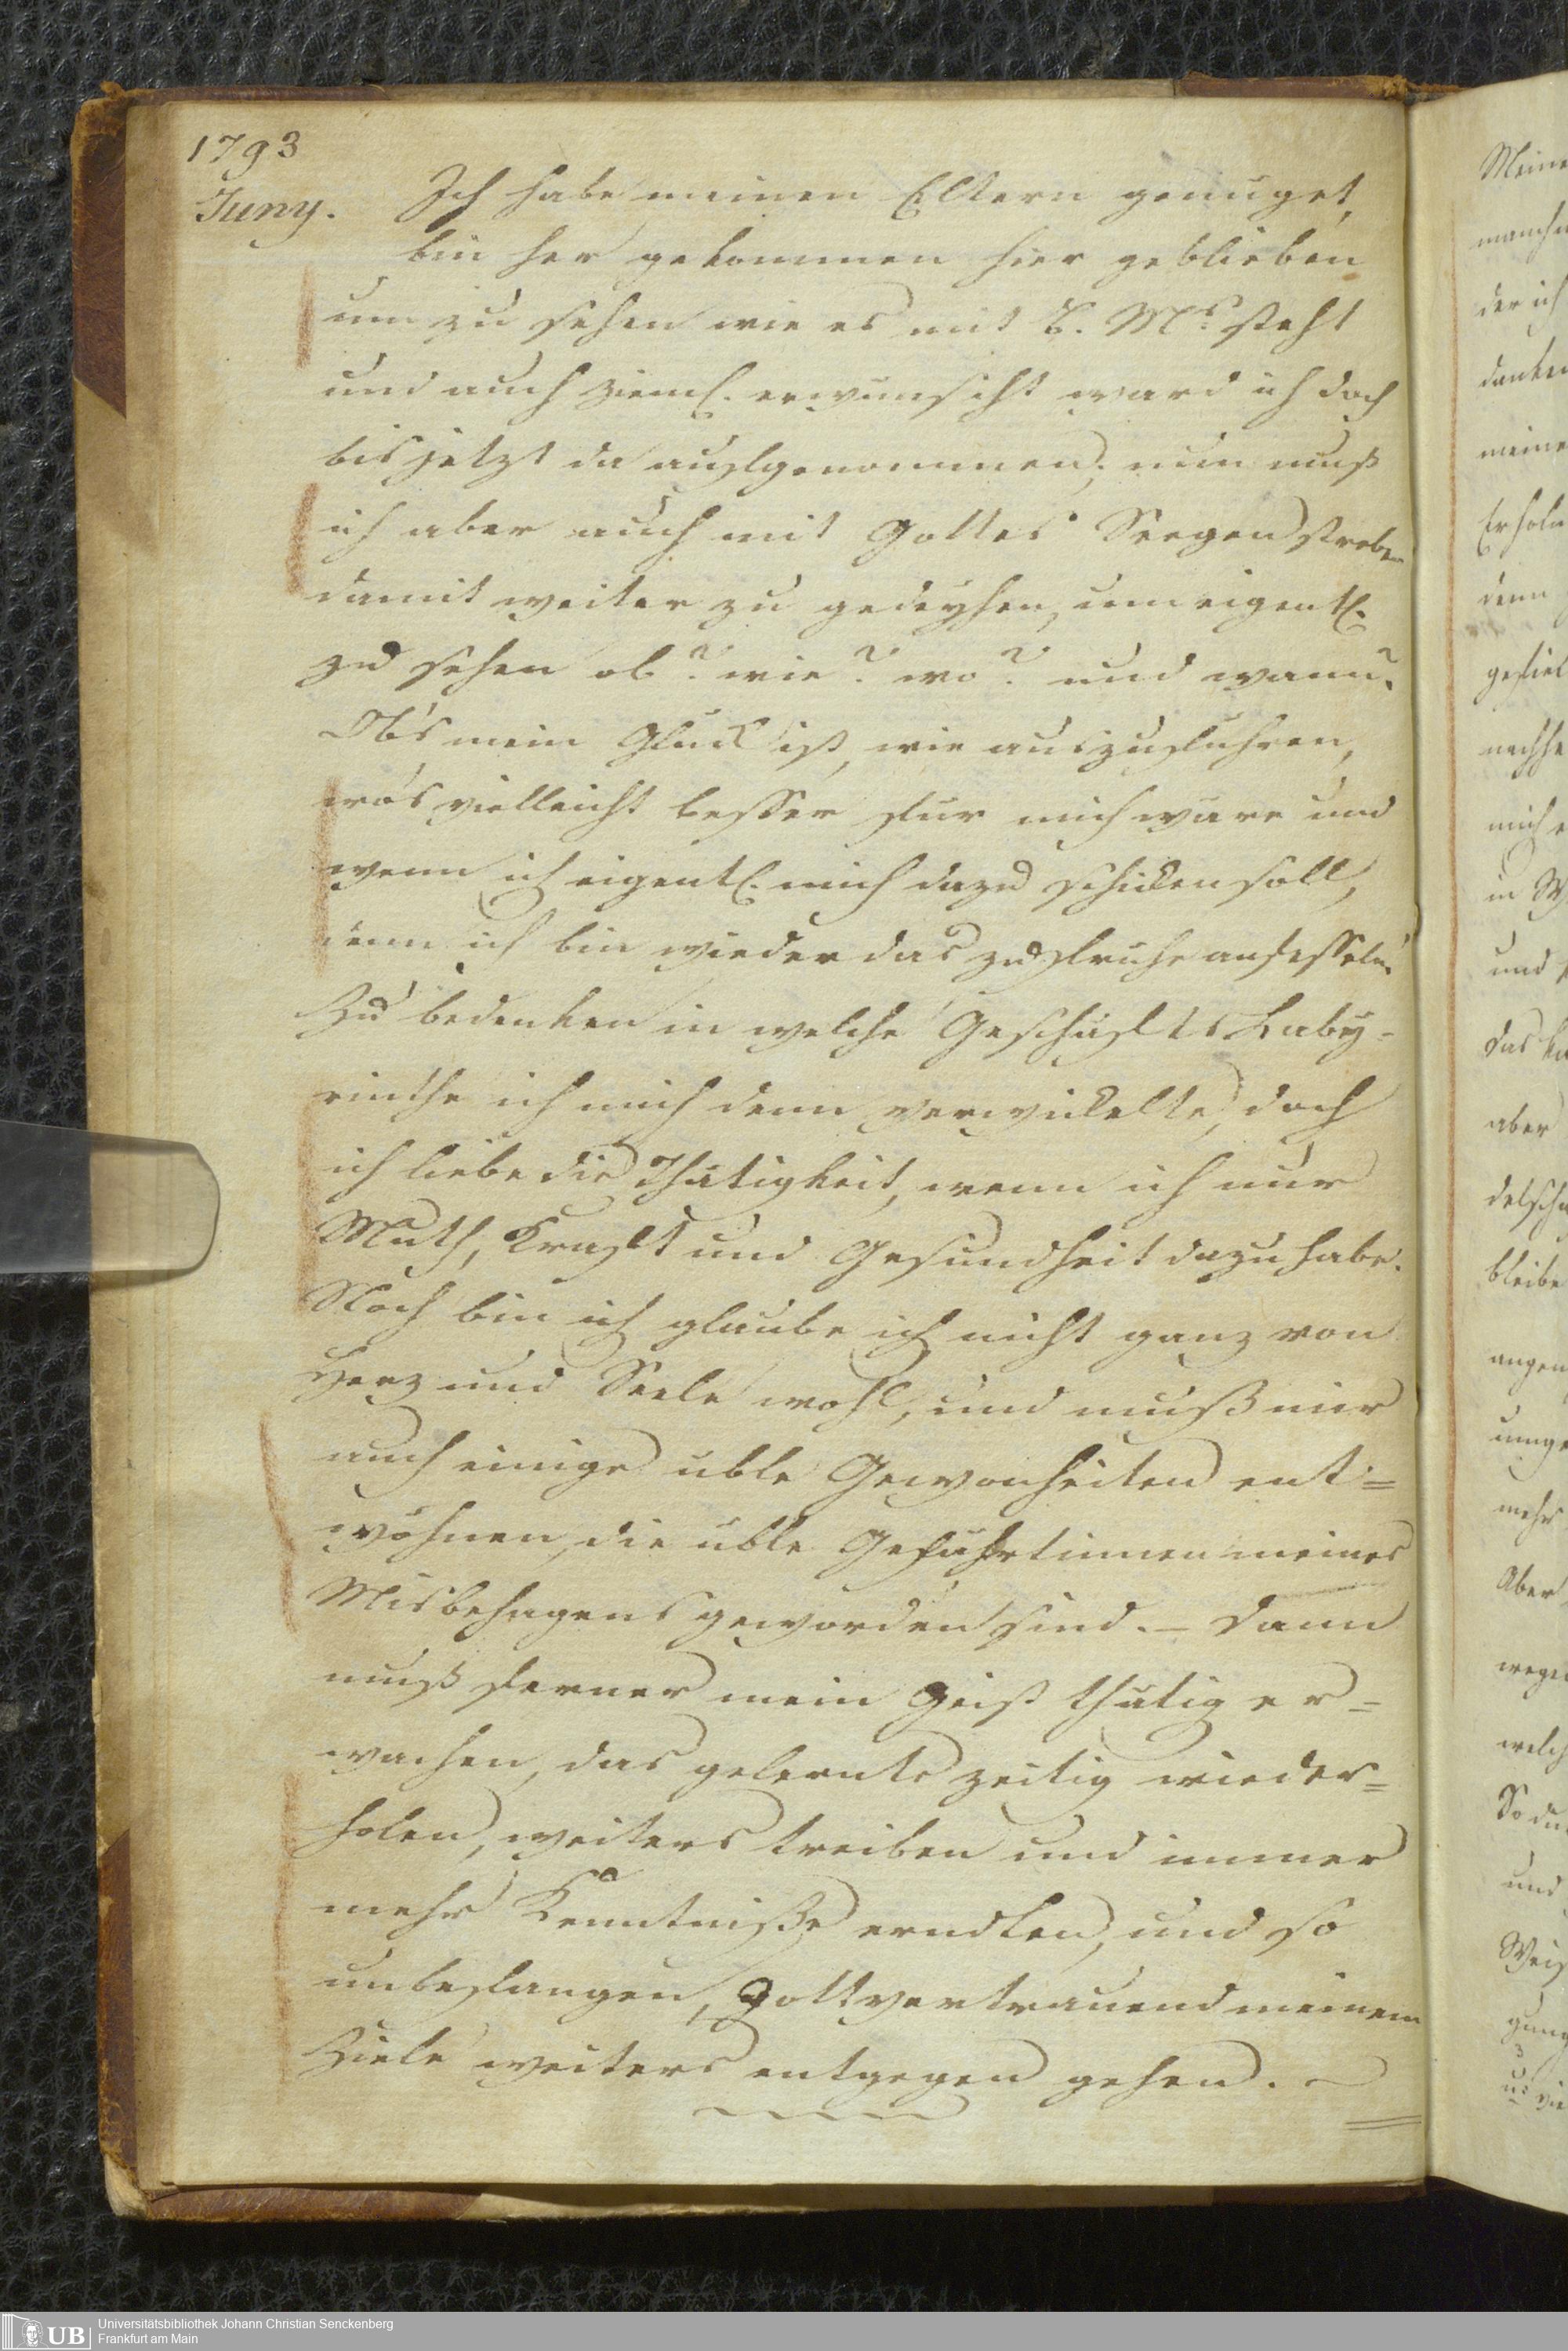 1793
Juny. Ich habe meinen Eltern genüget,
bin her gekommen hier geblieben
um zu sehen wie es mit B. Ms steht
und auch zieml. erwünscht ward ich doch
bis jetzt da aufgenommen; nun muß
ich aber auch mit Gottes Seegen streben
damit weiter zu gedeyhen, um eigentl.
zu sehen ob? wie? wo? und wann?
Ob's mein Glück ist, wie auszuführen,
wo's vielleicht besser für mich wäre und
wenn ich eigentl. mich dazu schicken soll,
denn ich bin wieder das zu fruhe anfesseln.
Zu bedenken in welche Geschäfts Laby-
rinthe ich mich denn verwickelte, doch
ich liebe die Thätigkeit, wenn ich nur
Muth, Kraft und Gesundheit dazu habe.
Noch bin ich glaube ich nicht ganz von
Herz und Seele wohl, und muß mir
auch einige üble Gewonheiten ent=
wöhnen, die üble Gefährtinnen meines
Misbehagens geworden sind. – Dann
muß ferner mein Geist thätig er=
wachen, das gelernte zeitig wieder=
holen, weiters treiben und immer
mehr Kenntniße erndten, und so
unbefangen, Gottvertrauend meinem
Ziele weiters entgegen gehen.
Meine
der ich
meine
denn
mich
in W
und
das
aber
bleibe
mehr
Aber
welch
und
UB
Universitätsbibliothek Johann Christian Senckenberg
Frankfurt am Main